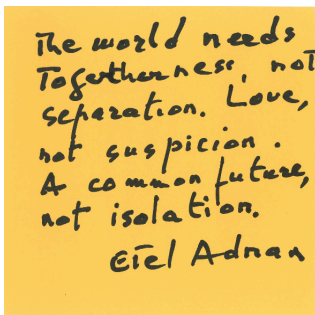 The world needs
Togetherness, not
separation. Love,
not suspicion.
A common future,
not isolation.
Etel Adnan